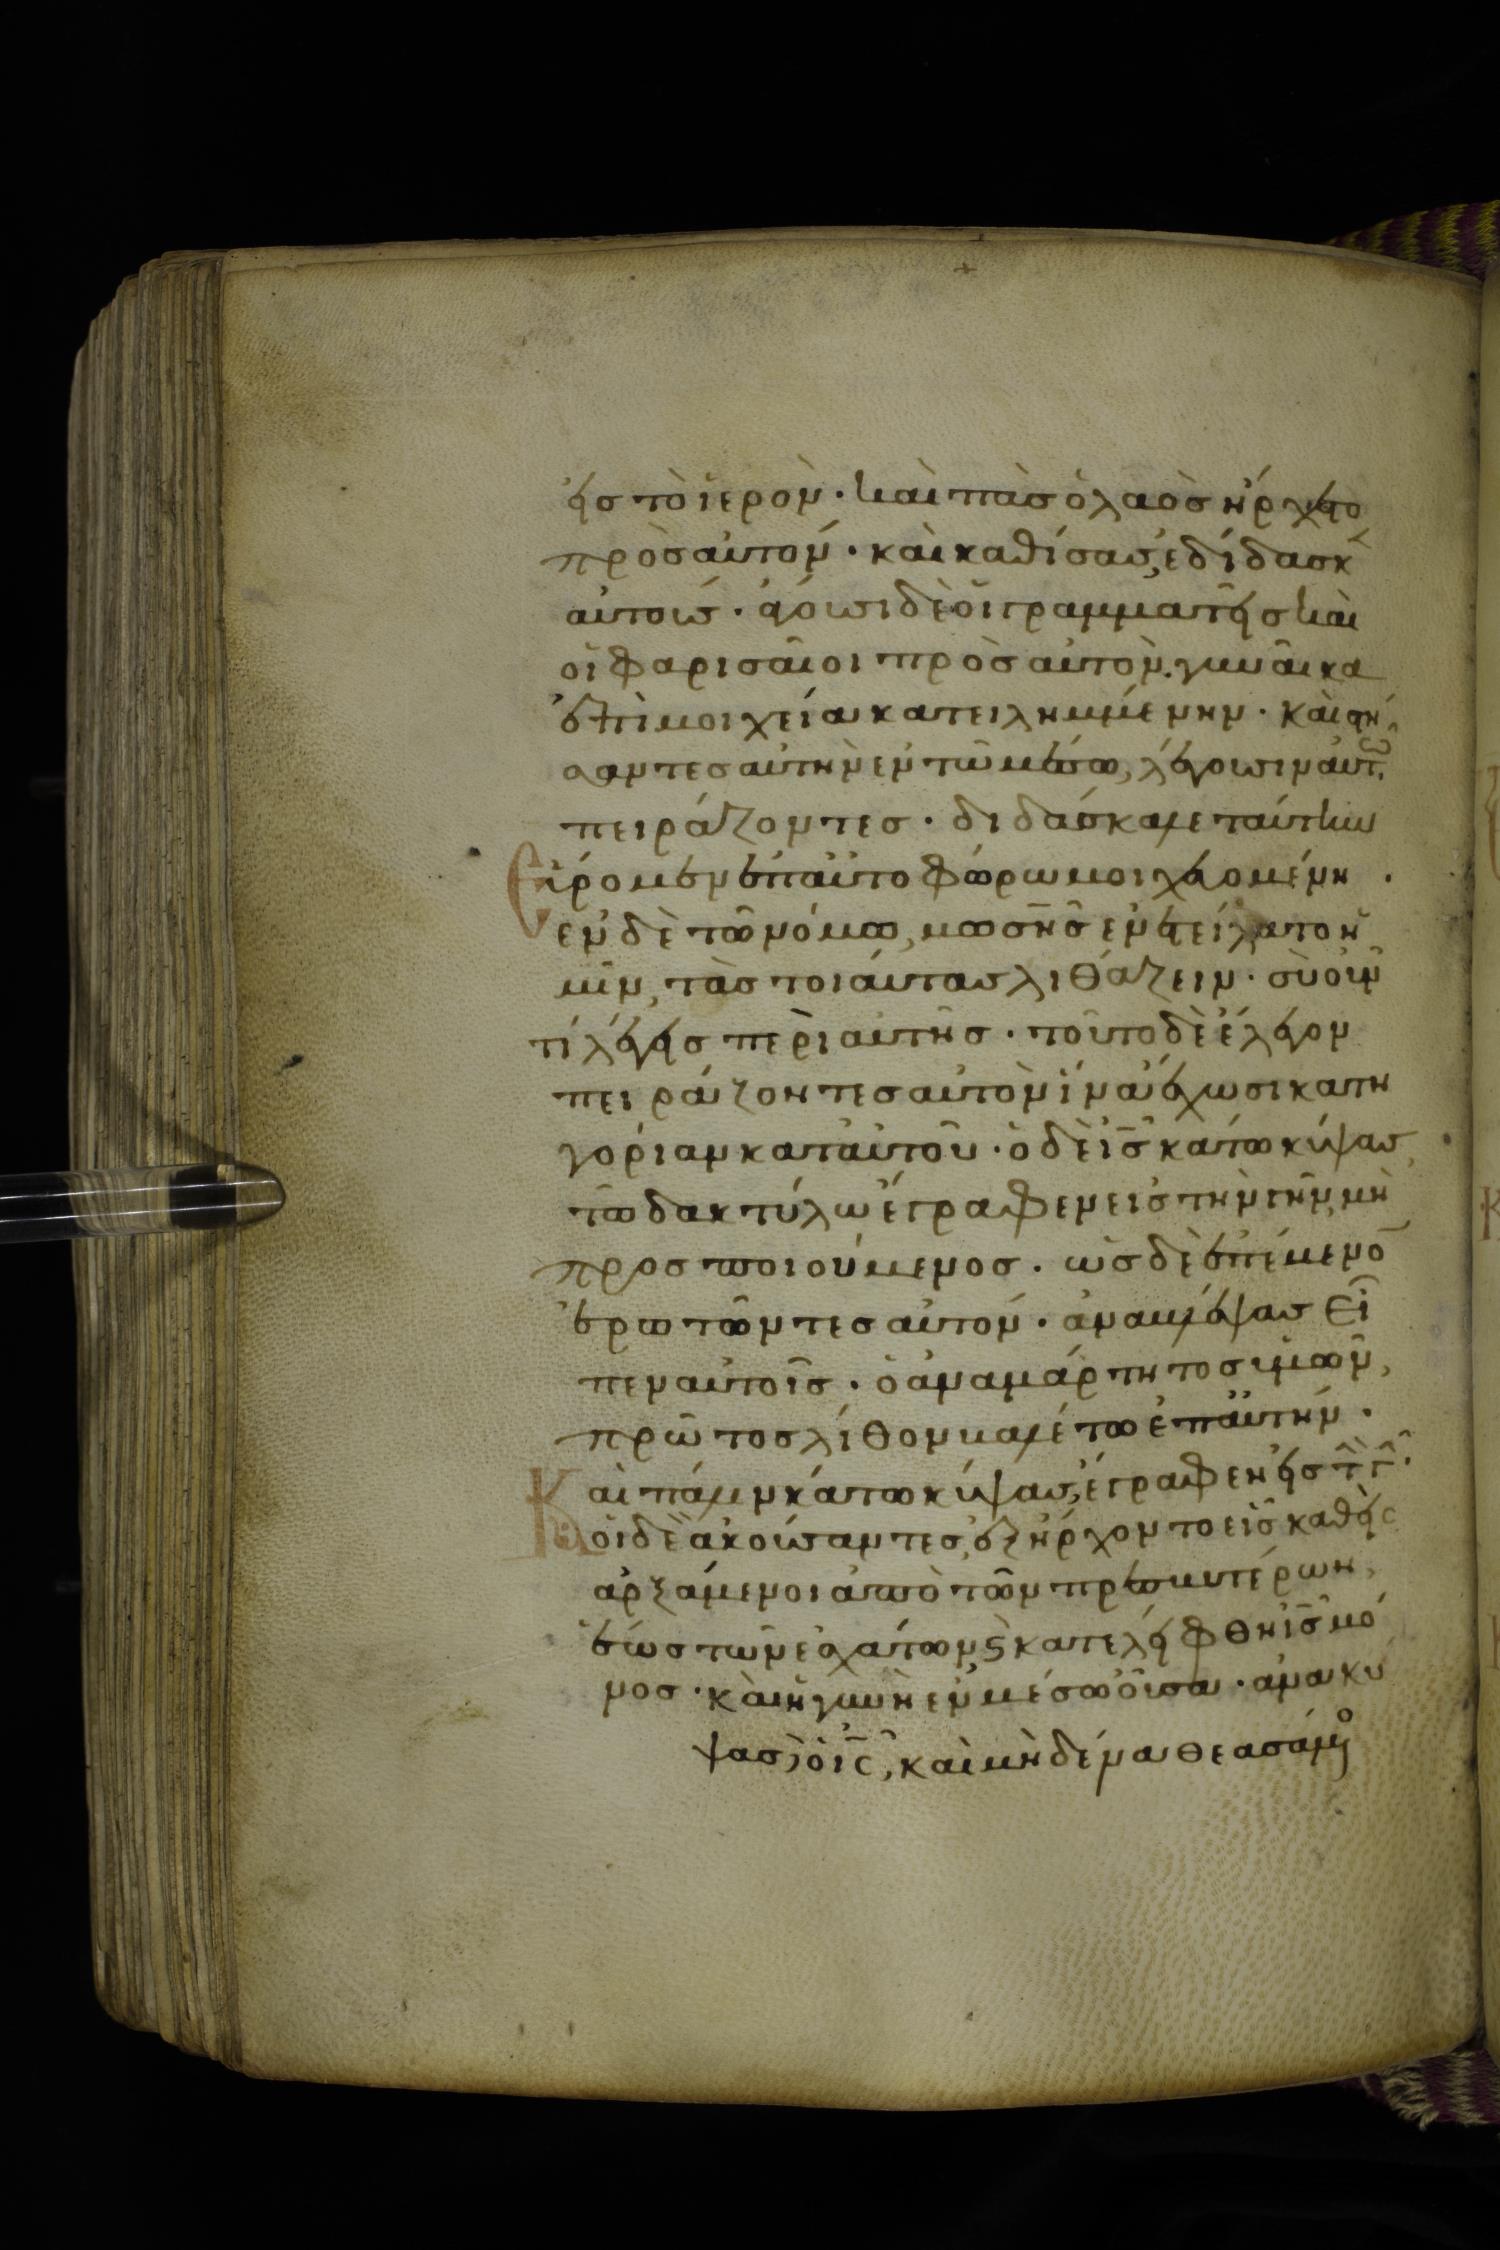 εἰς τὸ ἱερὸν · καὶ πᾶσ ὁ λαὸσ ἤρχετο
πρὸσ αὐτόν · καὶ καθίσασ, ἐδίδασκ
αὐτούσ · ἄγουσι δὲ οἱ γραμματεῖσ καὶ
οἱ φαρισαῖοι πρὸσ αὐτὸν γυναῖκα
ἐπὶ μοιχεία κατειλημμένην · καὶ στή
σαντεσ αὐτὴν ἐν τῶ μέσω, λέγουσιν αὐτῶ
πειράζοντεσ · διδάσκαλε ταύτην
εὕρομεν ἐπαυτοφόρω μοιχευομένη ·
ἐν δὲ τῶ νόμω, μωσῆσ ἐνετείλατο ἡ
μῖν, τὰσ τοιαύτασ λιθάζειν · σὺ οὖν
τί λέγεισ περὶ αὐτῆσ · τοῦτο δὲ ἔλεγον
πειράζοντεσ αὐτὸν ἵνα ἔχωσι κατη
γορίαν κατ αὐτοῦ · ὁ δὲ ἰσ κάτω κύψασ,
τῶ δακτύλω ἔγραφεν εἰσ τὴν γῆν, μὴ
προσποιούμενοσ · ὡσ δὲ ἐπέμενο
ἐρωτῶντεσ αὐτόν · ἀνακύψασ εἶ
πεν αὐτοῖσ · ὁ ἀναμάρτητοσ ὑμῶν,
πρῶτοσ λίθον βαλέτω ἐπ αὐτήν ·
Καὶ πάλιν κάτω κύψασ, ἔγραφεν εἰσ τ γ ·
οἱ δὲ ἀκούσαντεσ, ἐξήρχοντο εἷσ καθεῖς
ἀρξάμενοι ἀπὸ τῶν πρεσβυτέρων,
ἕωσ τῶν ἐσχάτων ϗ κατελείφθη ἰσ μό
νοσ · καὶ ἡ γυνὴ ἐν μέσω οὖσα · ἀνακύ
ψασ ὁ ις, καὶ μηδένα θεασάμενο